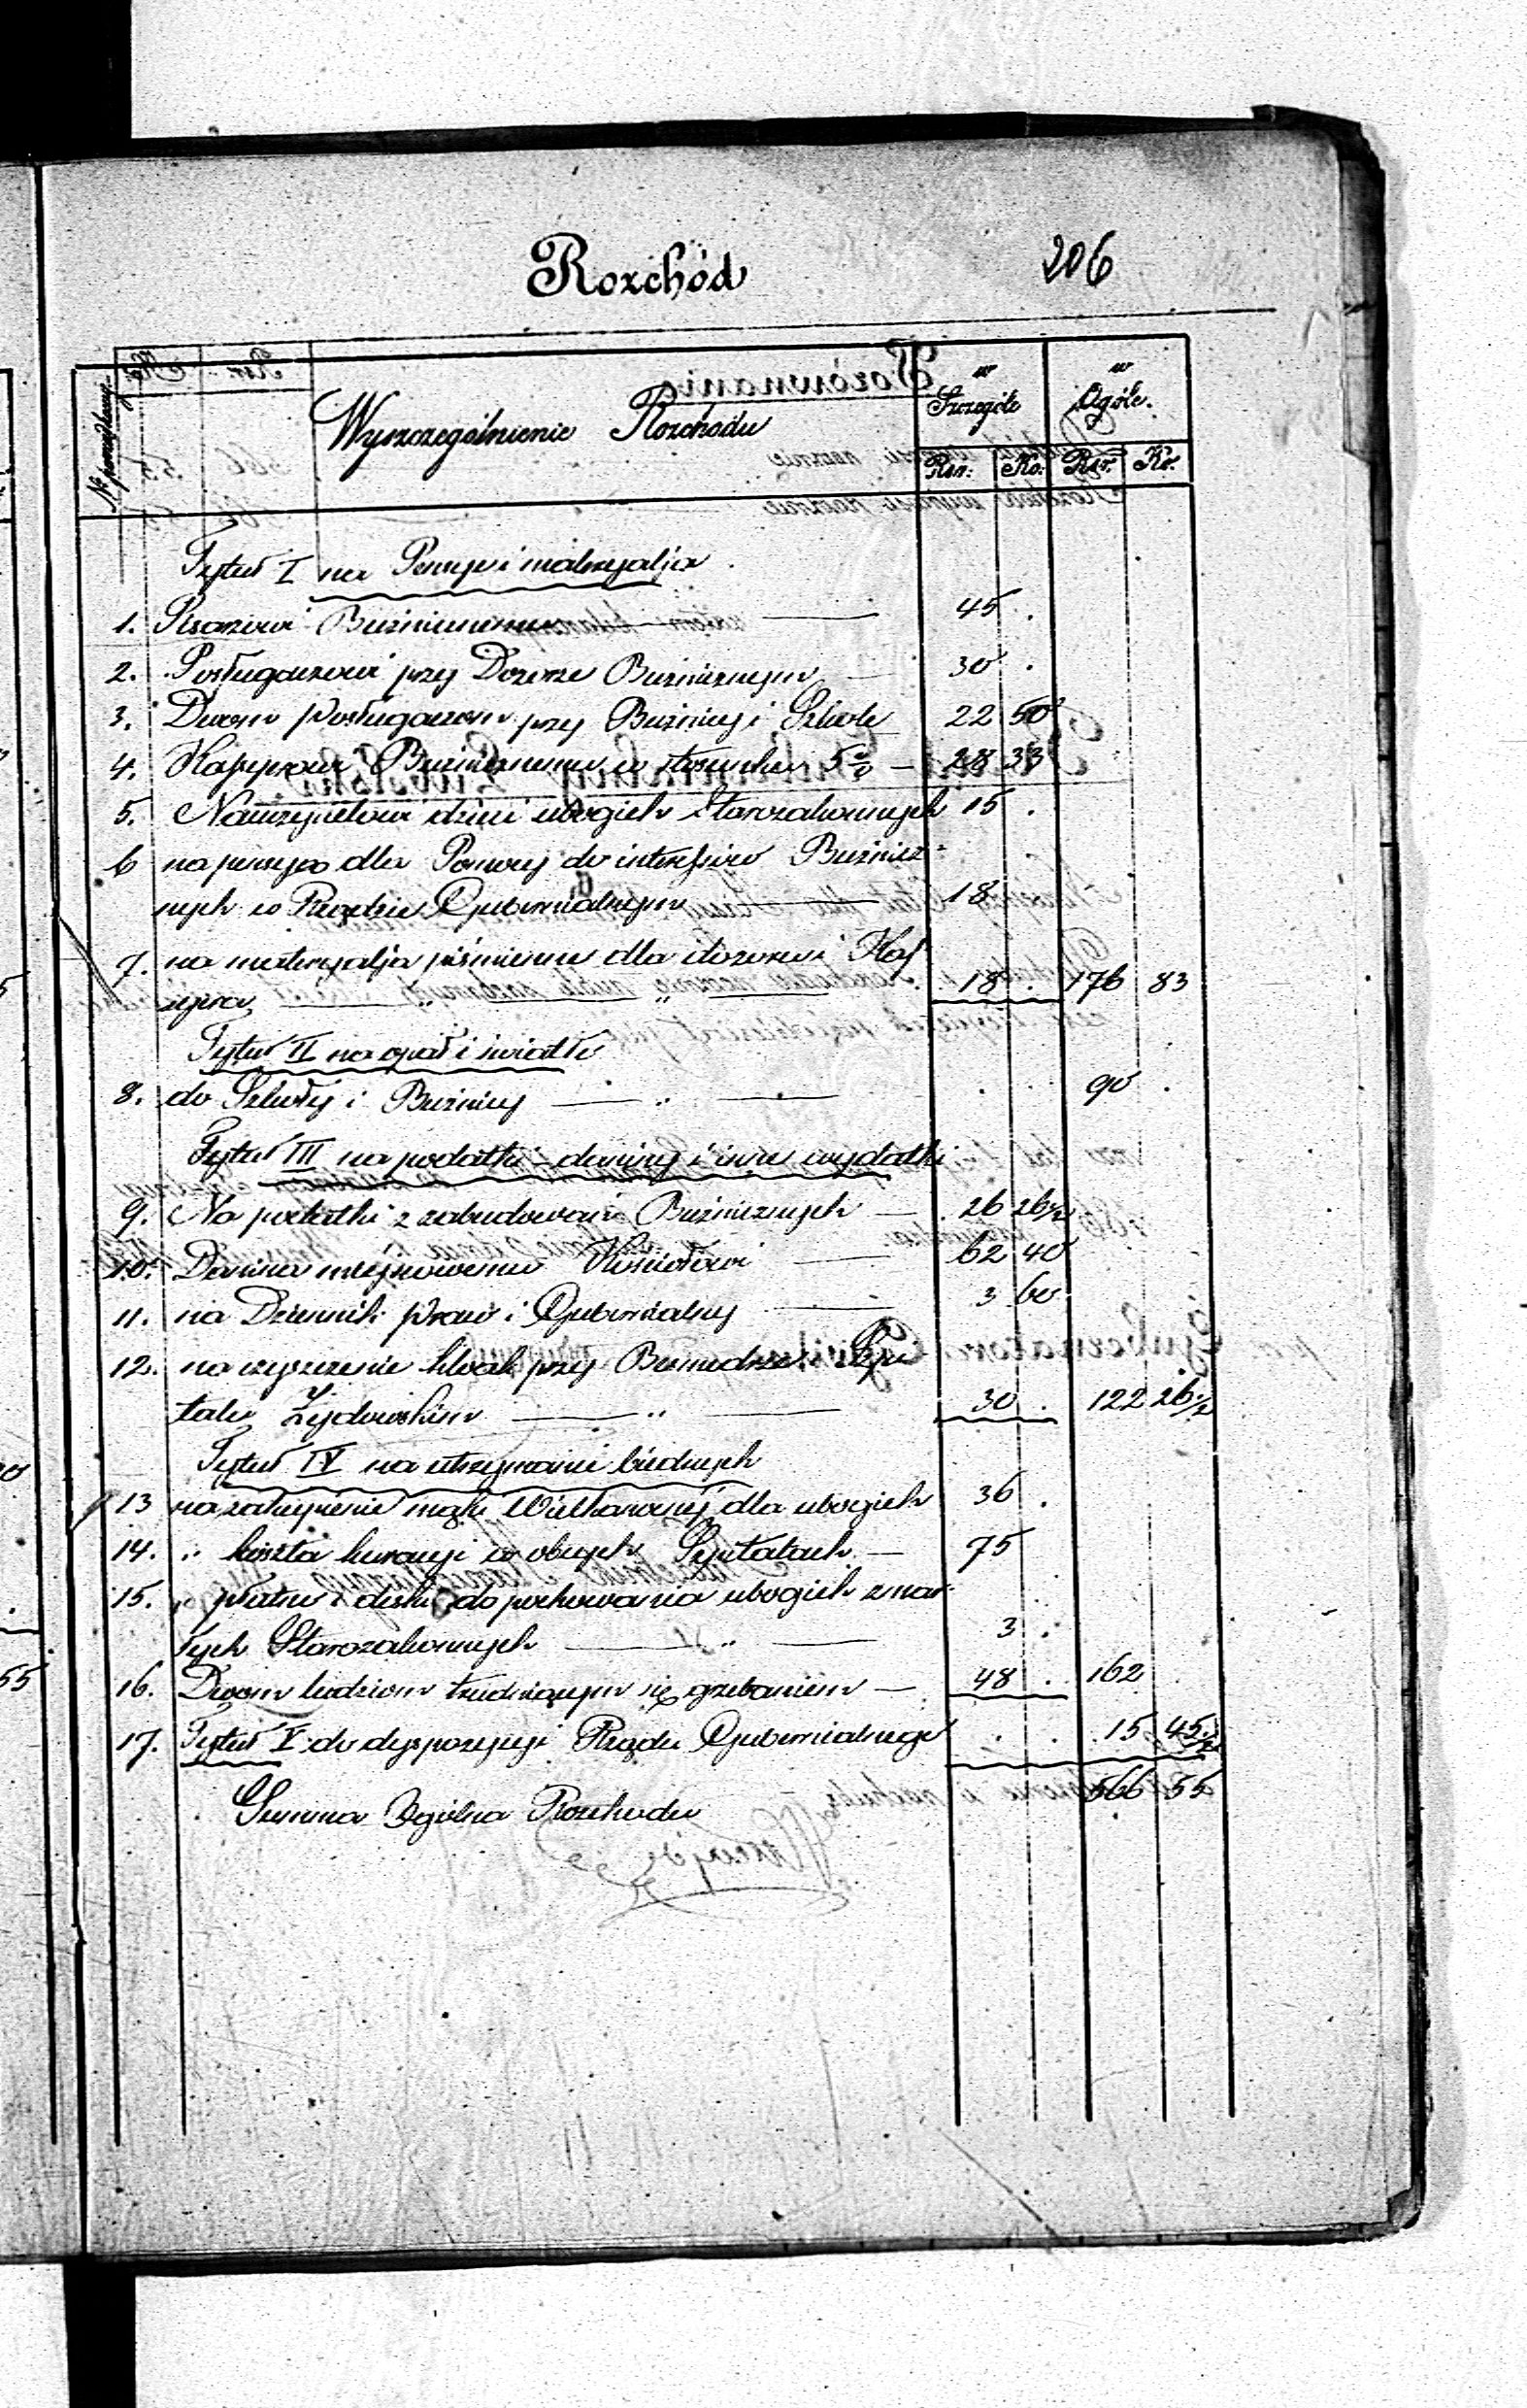 Rozchód 206
№ porządkowy Wyszczególnienie Rozchodu w Szczególe w Ogóle.
Rsr. Ko. Rsr. Ko.
Tytuł I na Pensye i materyalja
1. Pisarzowi Bużnicznemu 45 .
2. Posługaczowi przy Dozorze Bużnicznym 30 .
3. Dwom posługaczom przy Bużnicy i Szkole 22 50
4. Kassyerowi Bużnicznemu w stosunku 5% 28 33
5. Nauczycielowi dzieci ubogich Starozakonnych 15 .
6 na pensyą dla Pomocy do interessów Bużnicz-
nych w Rządzie Gubernialnym 18
7. na materyalja piśmienne dla dozoru i Kas-
syera 18 . 176 83
Tytuł II na opał i światło
8. do Szkoły i Bużnicy . . 90 .
Tytuł III na podatki daniny i inne wydatki
9. Na podatki z zabudowań Bużnicznych 26 26½
10. Danina miejscowemu Kościołowi 62 40
11. na Dziennik praw i Gubernialny 3 60
12. na czyszczenie kloak przy Szpi
talu Żydowskim 30 . 122 26½
Tytuł IV na utrzymanie biednych
13 na zakupienie mąki Wielkanocnej dla ubogich 36 .
14. " koszta kuracyi w obcych Szpitalach 75
15. " płutno i deski do pochowania ubogich zmar-
łych Starozakonnych 3 .
16. Dwom ludziom trudniącym się grzebaniem 48 . 162
17. Tytuł V do dyspozycyi Rządu Gubernialnego . . 15 45½
Summa Ogólna Rozchodu 566 55